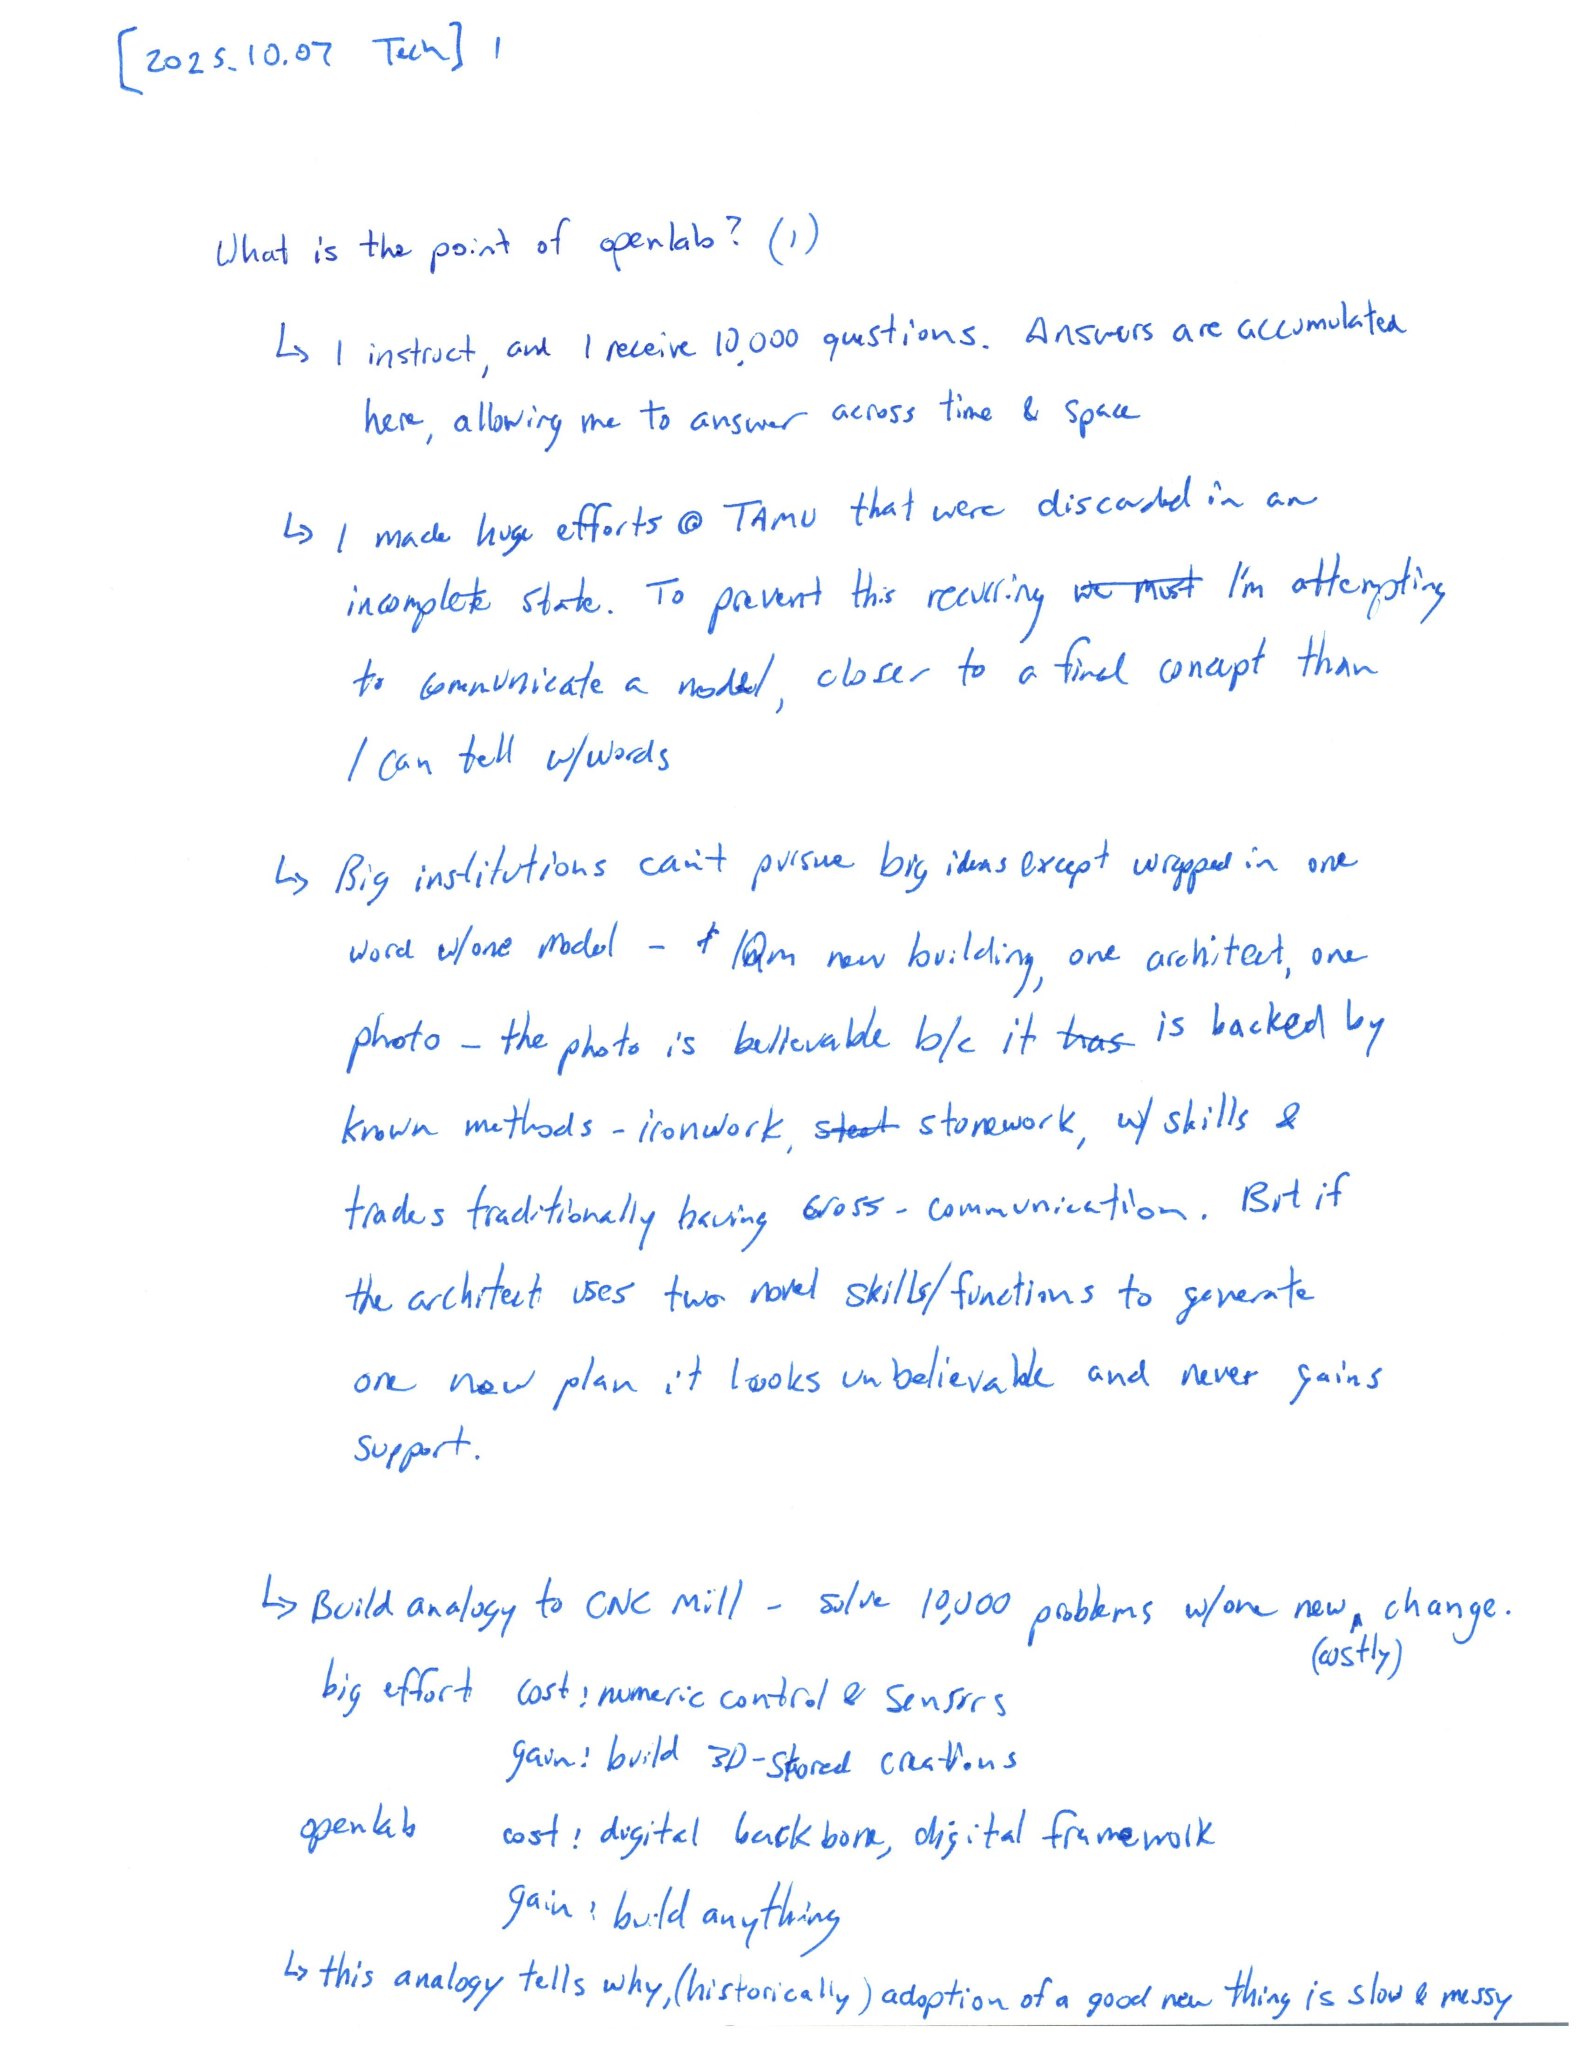 [2025.10.07 Tech] 1
What is the point of openlab? (1)
↳ I instruct, and I receive 10,000 questions. Answers are accumulated
here, allowing me to answer across time & space
↳ I made huge efforts @ TAMU that were discarded in an
incomplete state. To prevent this recurring we must I'm attempting
to communicate a model, closer to a final concept than
I can tell w/words
↳ Big institutions can't pursue big ideas except wrapped in one
word w/one model - $ 10m new building, one architect, one
photo - the photo is believable b/c it has is backed by
known methods - ironwork, steel stonework, w/ skills &
trades traditionally having cross-communication. But if
the architect uses two novel skills/functions to generate
one new plan it looks unbelievable and never gains
support.
↳ Build analogy to CNC Mill - solve 10,000 problems w/one new ^ change.
(costly)
big effort cost: numeric control & sensors
gain: build 3D-stored creations
openlab cost: digital backbone, digital framework
gain: build anything
↳ this analogy tells why, (historically) adoption of a good new thing is slow & messy